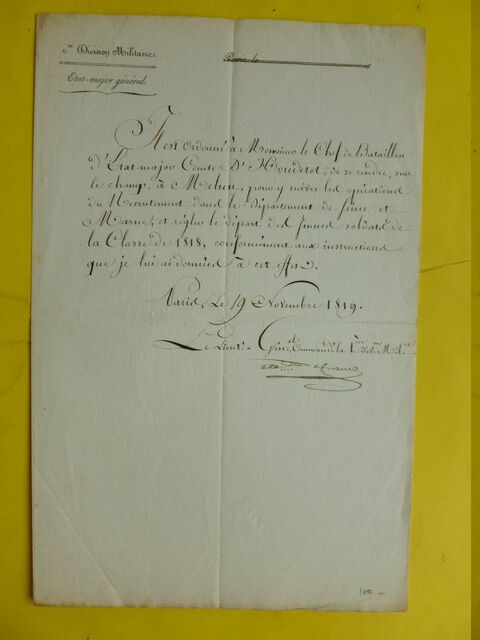 1re Division Militaire.
Paris, le
Etat-major général.
Il est Ordonné à Monsieur le Chef de Bataillon
d'Etat-major Comte D'Houdetot, de se rendre, sur
le champ, à Melun, pour y suivre les opérations
du Recrutement dans le département de Seine et
Marne, et régler le départ des jeunes soldats de
la Classe de 1818, conformément aux instructions
que je lui ai données à cet effet.
Paris, Le 19 Novembre 1819.
Le Lieut.t Gén.al Command.t la 1ère div.on M.re
100 -